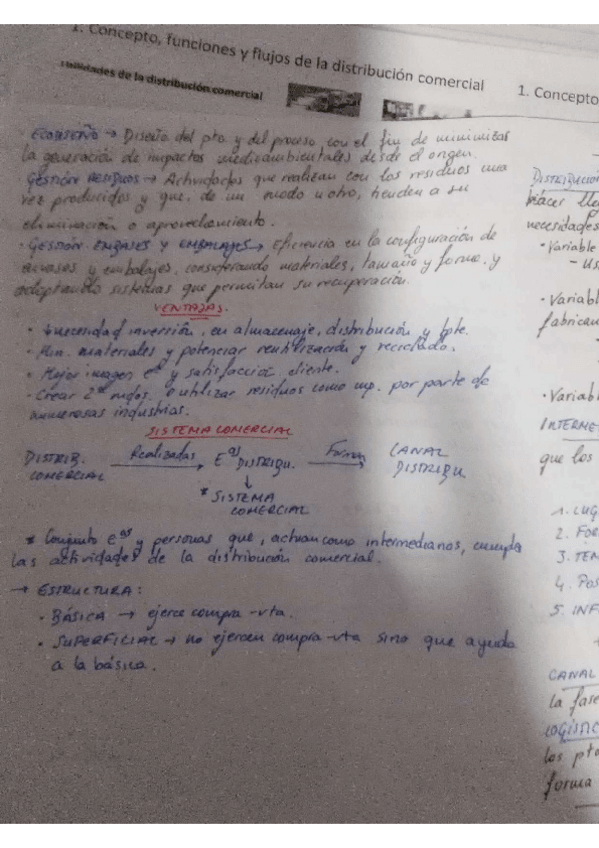 1. Concepto, funciones y flujos de la distribución comercial
de la distribución comercial
ECODISEÑO → Diseño del pto. y del proceso con el fin de minimizar
la generación de impactos medioambientales desde el origen.
GESTIÓN RESIDUOS → Actividades que realizan con los residuos una
vez producidos y que, de un modo u otro, tienden a su
eliminación o aprovechamiento.
· GESTIÓN ENVASES Y EMBALAJES → Eficiencia en la configuración de
envases y embalajes, considerando materiales, tamaño y forma, y
adoptando sistemas que permitan su recuperación.
VENTAJAS.
· necesidad inversión, en almacenaje, distribución y tpte.
· Min. materiales y potenciar reutilización y reciclado.
· Mejor imagen eª y satisfacción cliente.
· Crear 2º mdos. o utilizar residuos como mp. por parte de
numerosas industrias.
SISTEMA COMERCIAL
DISTRIB. COMERCIAL Realizadas → Eªs DISTRIBU. Forman → CANAL DISTRIBU
↓
* SISTEMA
COMERCIAL
* Conjunto eªs y personas que, actuan como intermediarios, cumplen
las actividades de la distribución comercial.
→ ESTRUCTURA:
· BÁSICA → ejerce compra-vta.
· SUPERFICIAL → no ejercen compra-vta sino que ayuda
a la básica.
1. Concepto
DISTRIBUCIÓN
hacer lle
necesidades
· Variable
- Us
· Variabl
fabrican
· Variab
INTERME
que los
1. LUG
2. FOR
3. TEM
4. Pos
5. INF
CANAL
la fase
LOGÍSTIC
los pto
forma